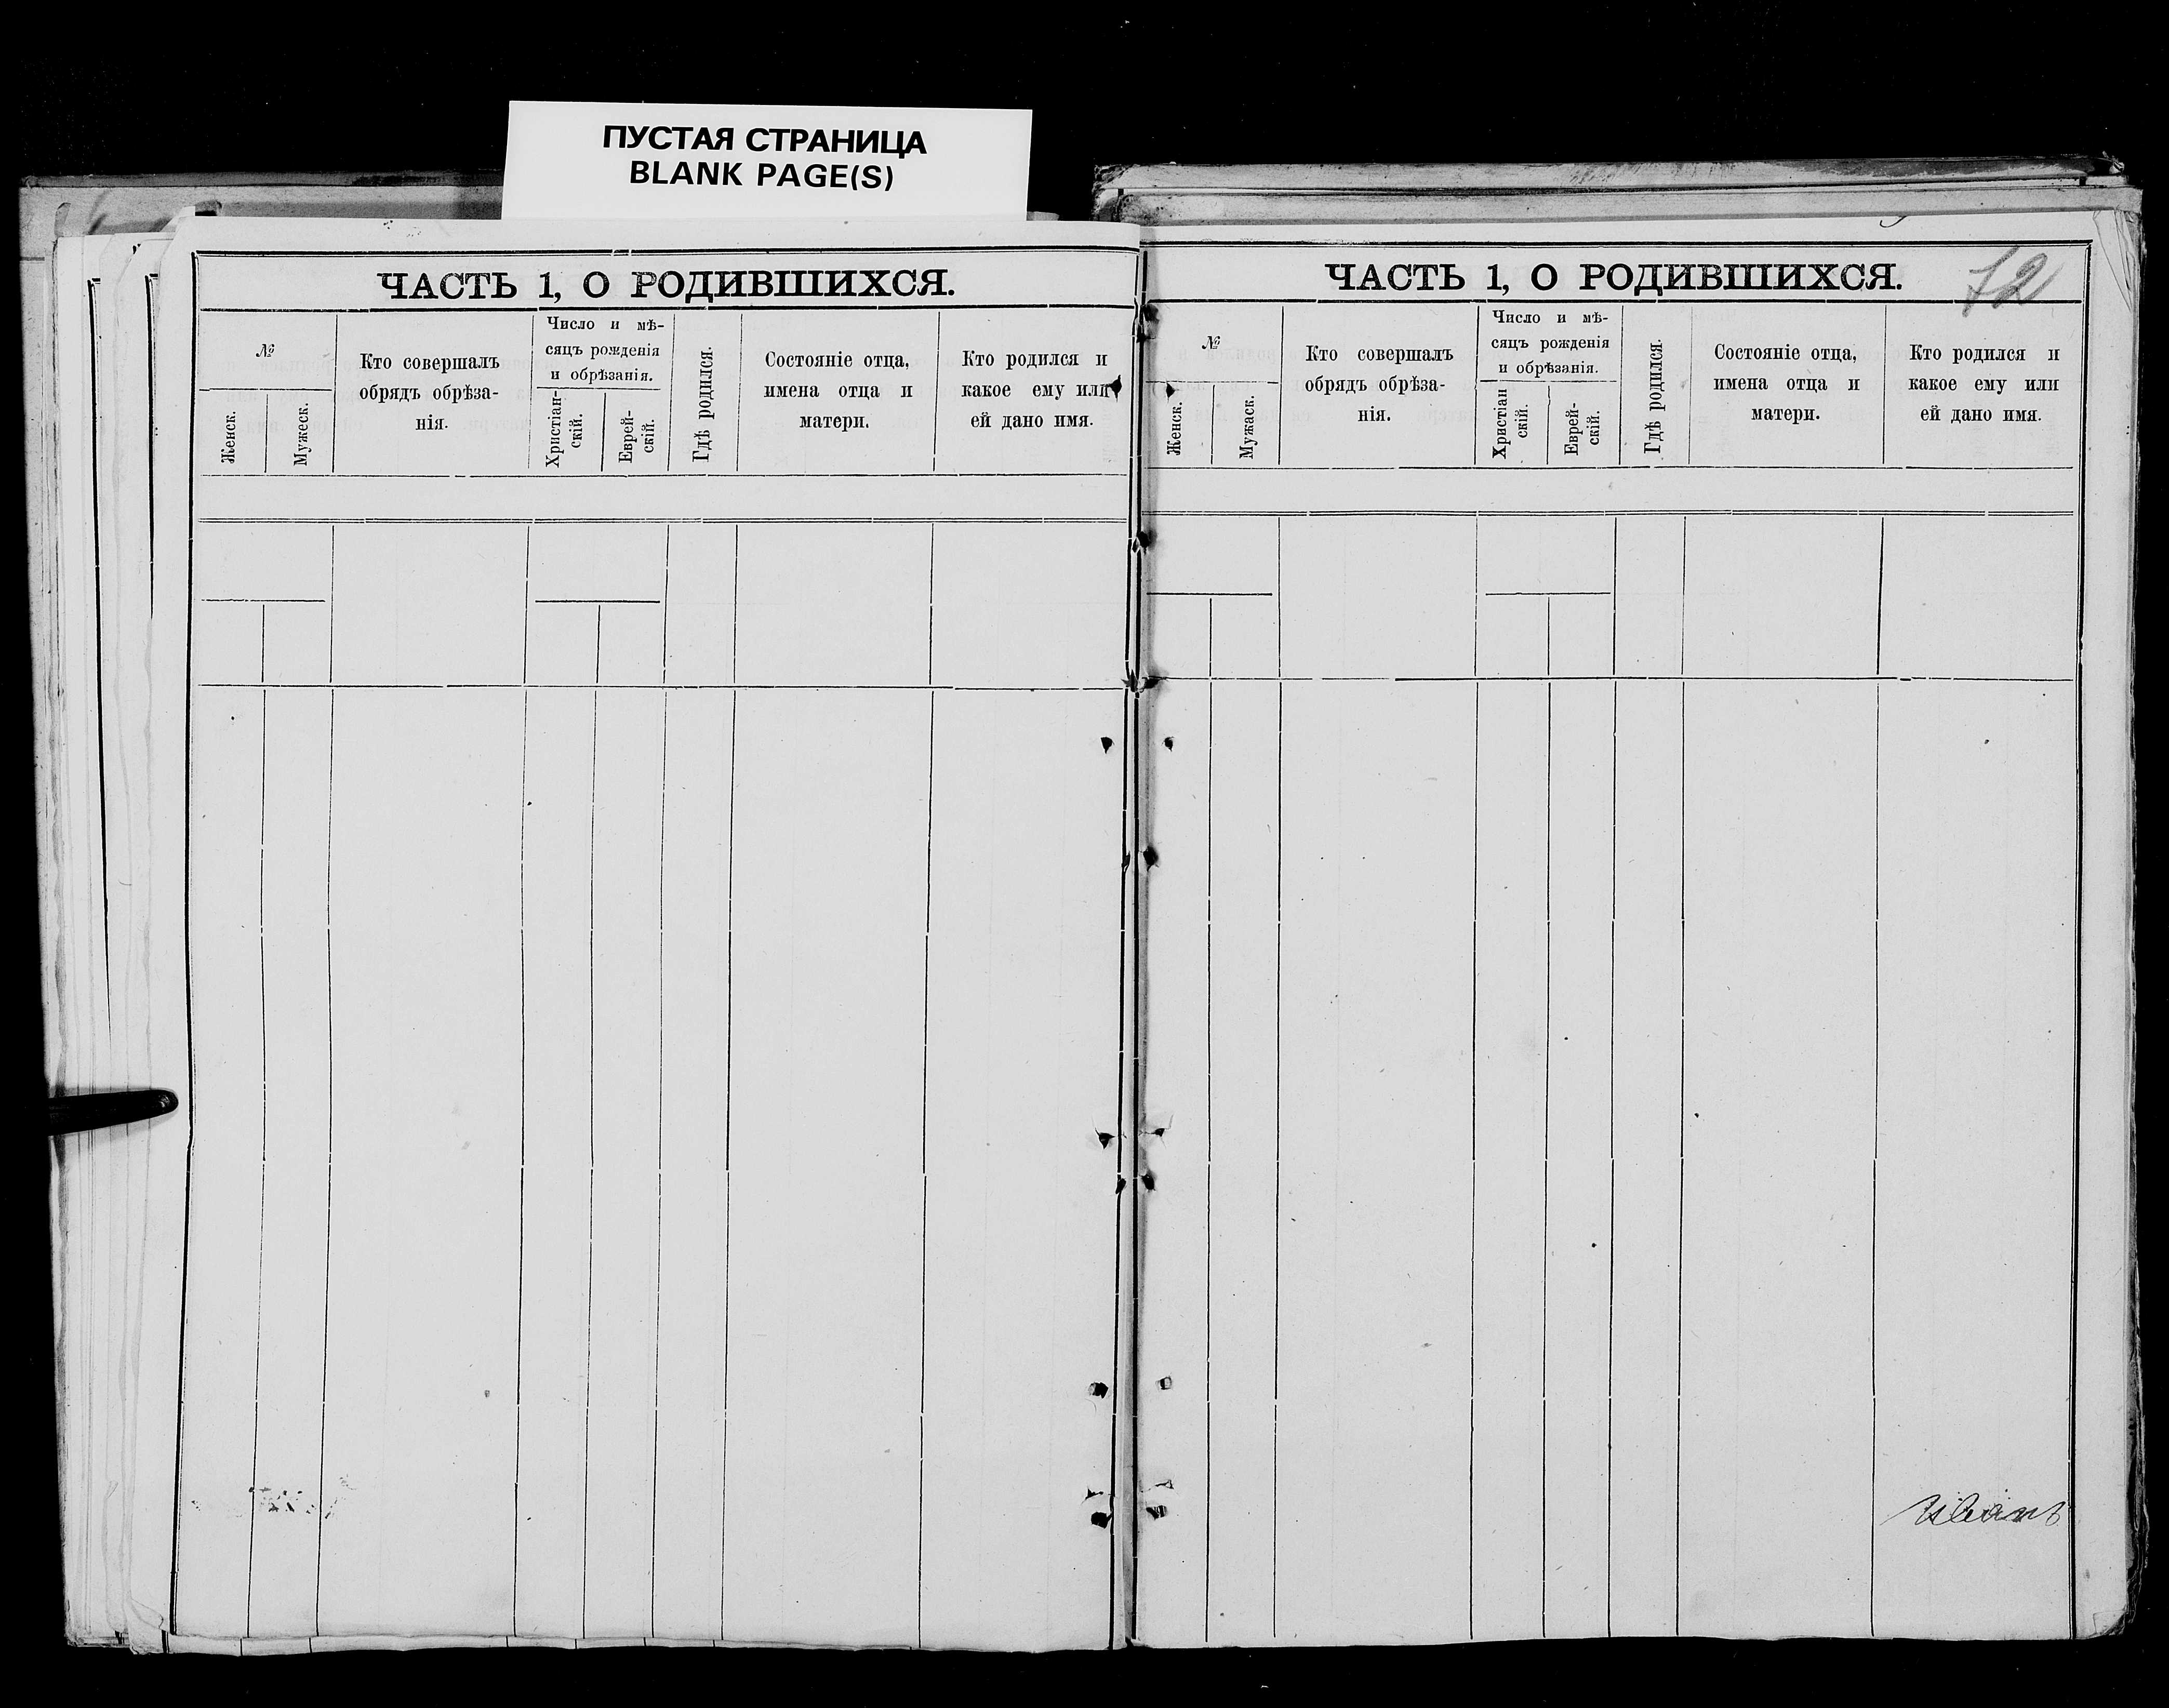 ПУСТАЯ СТРАНИЦА
BLANK PAGE(S)
ЧАСТЬ 1, О РОДИВШИХСЯ.
№
Женск.
Мужеск.
Кто совершалъ
обрядъ обрѣза-
нія.
Число и мѣ-
сяцъ рожденія
и обрѣзанія.
Христіан-
скій.
Еврей-
скій.
Гдѣ родился.
Состояніе отца,
имена отца и
матери.
Кто родился и
какое ему или
ей дано имя.
ЧАСТЬ 1, О РОДИВШИХСЯ.
72
№
Женск.
Мужаск.
Кто совершалъ
обрядъ обрѣза-
нія.
Число и мѣ-
сяцъ рожденія
и обрѣзанія.
Христіан
скій.
Еврей-
скій.
Гдѣ родился.
Состояніе отца,
имена отца и
матери.
Кто родился и
какое ему или
ей дано имя.